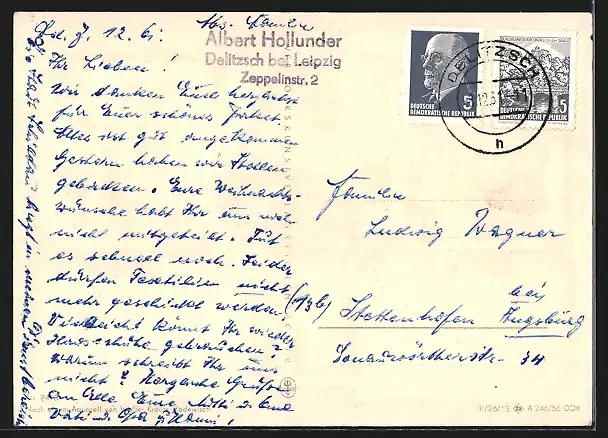 Abs. Familie
Albert Hollunder
Delitzsch bei Leipzig
Zeppelinstr. 2
12. 61
Ihr Lieben!
Wir danken Euch herzlichst
für Euer schönes Paket
Alles ist gut angekommen
Gestern haben wir Stollen
gebacken. Eure Weihnachts-
wünsche habt Ihr uns noch
nicht mitgeteilt. Tut
es schnell noch. Leider
dürfen Textilien nicht
mehr geschickt werden.
Vielleicht könnt Ihr wieder
gebrauchen?
Warum schreibt Ihr uns
nicht? Herzliche Grüße
an Alle Eure Mutti u. Oma
Vati u. Opa
DEUTSCHE
DEMOKRATISCHE REPUBLIK
5
DEUTSCHE
DEMOKRATISCHE REPUBLIK
15
DELITZSCH
h
Familie
Ludwig Wagner
(13b) Stettenhofen bei Augsburg
Donauwörtherstr. 34
Nach einem Aquarell von Walter Krauß, Radewisch
III/26/13 A 246/56 DDR